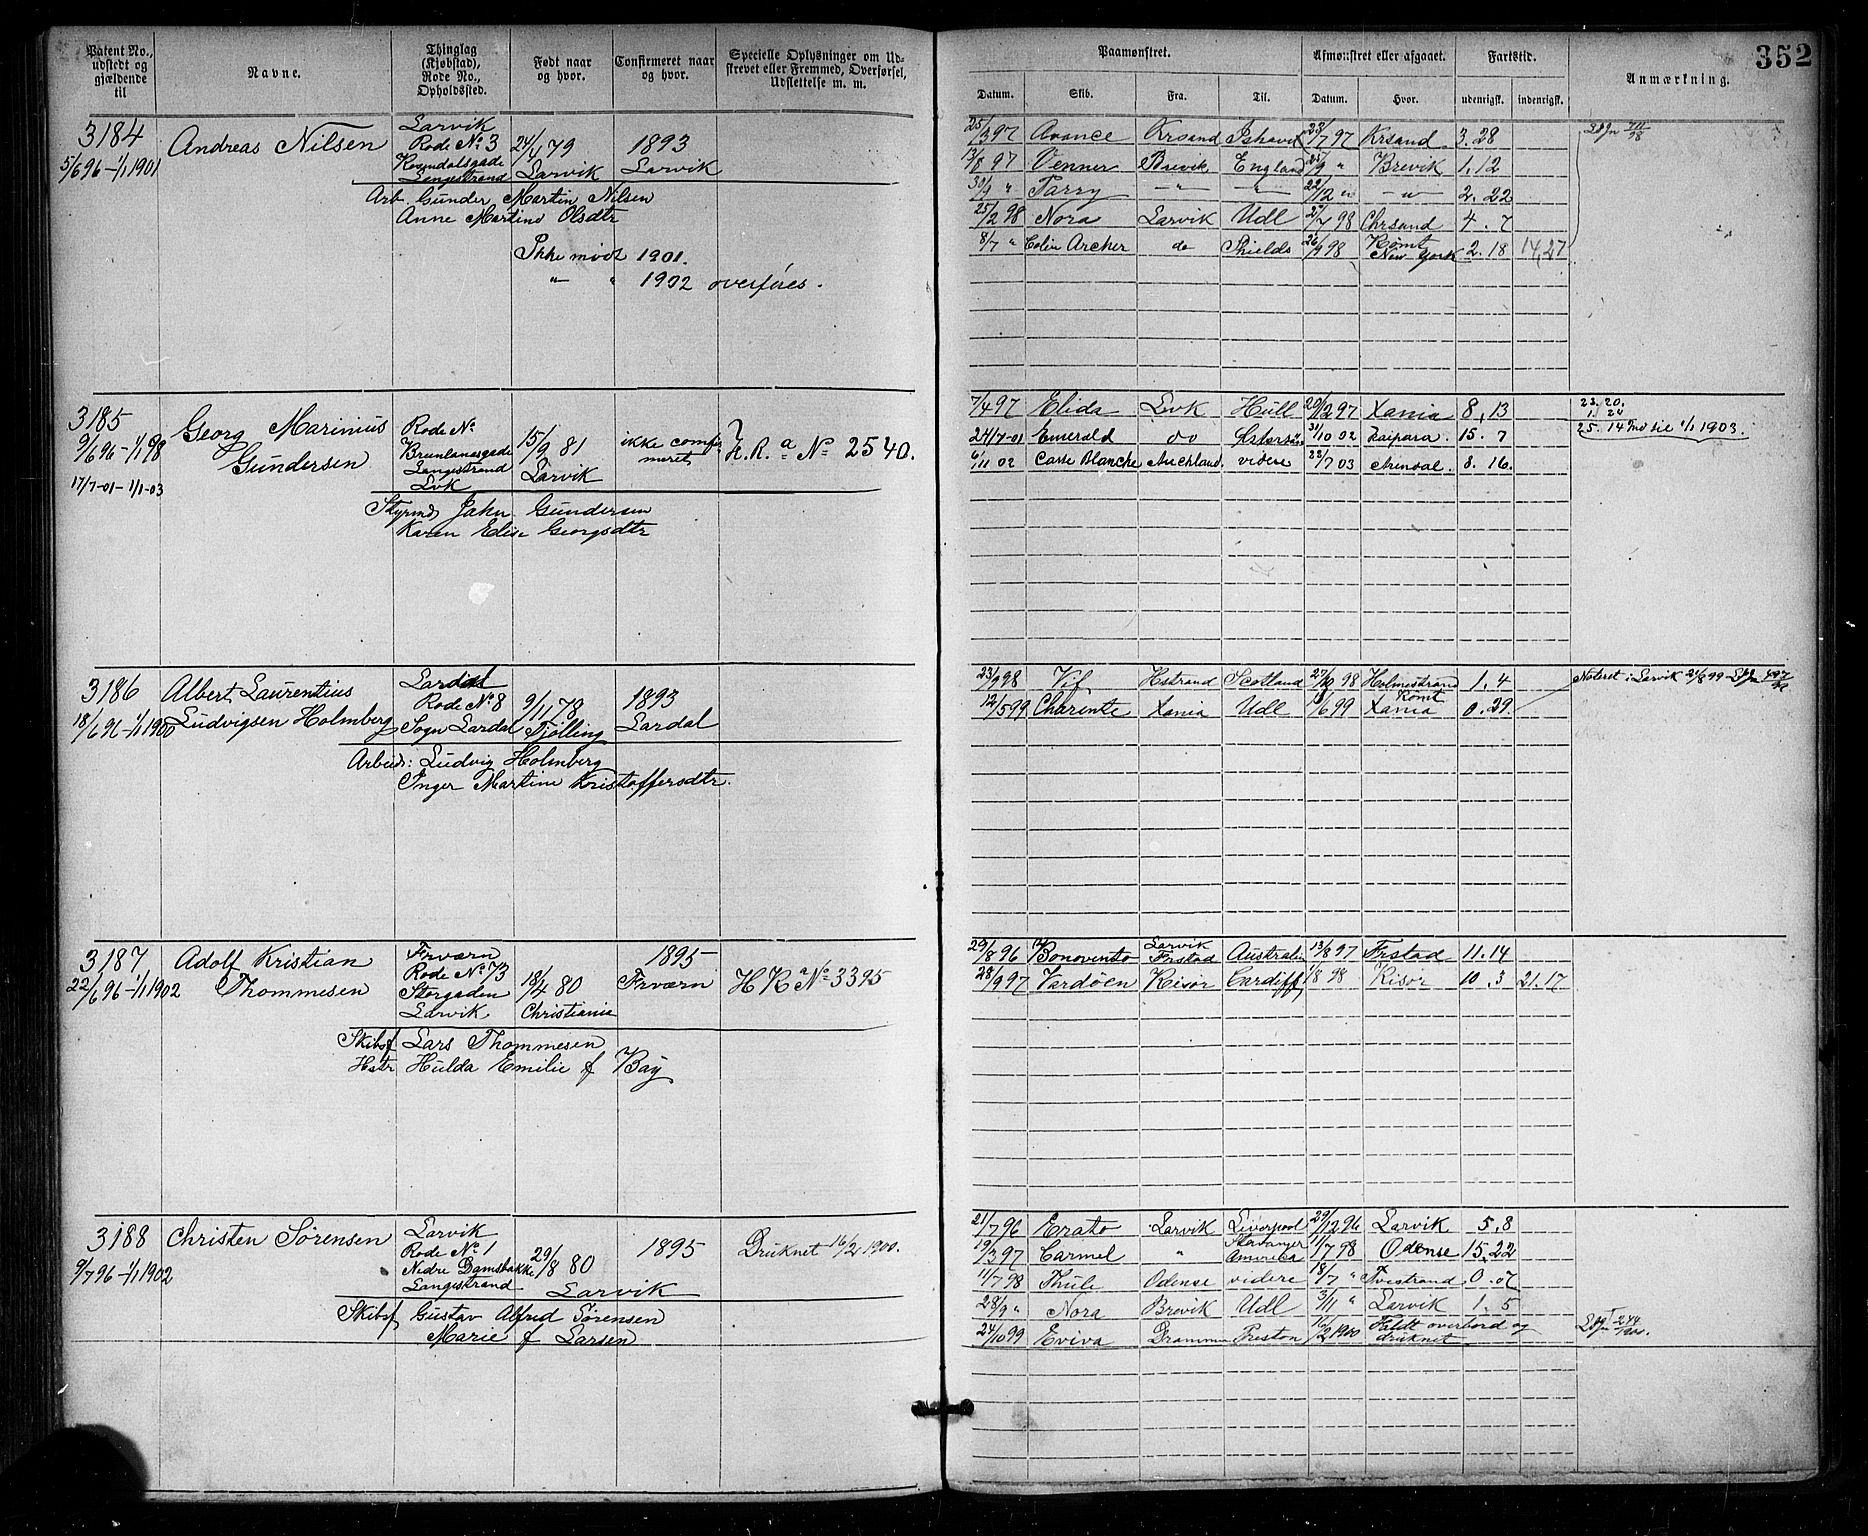 Patent No., udstedt og gjældende til
Navne.
Thinglag (Kjøbstad), Rode No., Opholdssted.
Født naar og hvor.
Confirmeret naar og hvor.
Specielle Oplysninger om Udskrevet eller Fremmed, Overførsel, Udslettelse m. m.
3184
5/6 96 - 1/1 1901
Andreas Nilsen
Larvik
Rode No 3
Langestrand
79
Larvik
1893
Larvik
Arb. Gunder Martin Nilsen
Anne Martine Olsdtr
Ikke mødt 1901.
" " 1902 overføres.
3185
9/6 96 - 1/1 98
17/7-01 - 1/1-03
Georg Marinius
Gundersen
Rode No
Brunlanæsgade
Langestrand
Lvk
15/9 81
Larvik
ikke comfir
meret
H. R. a No 2540.
Styrmd Jahn Gundersen
Karen Elise Georgsdtr
3186
18/6 96 - 1/1 1900
Albert Laurentius
Ludvigsen Holmberg
Lardal
Rode No 8
Sogn Lardal
9/11 78
Tjølling
1893
Lardal
Arbeid: Ludvig Holmberg
Inger Martine Kristoffersdtr.
3187
22/6 96 - 1/1 1902
Adolf Kristian
Thommesen
Frværn
Rode No 73
Storgaden
Larvik
18/4 80
Christiania
1895
Frværn
H R a No 3395
Skibsf Lars Thommesen
Hstr Hulda Emilie f Bay
3188
9/7 96 - 1/1 1902
Christen Sørensen
Larvik
Rode No 1
Nedre Damsbakke
Langestrand
29/8 80
Larvik
1895
Druknet 16/2 1900.
Skibsf Gustav Alfred Sørensen
Marie f Larsen
352
Paamønstret.
Afmønstret eller afgaaet.
Fartstid.
Anmærkning.
Datum. Skib. Fra. Til. Datum. Hvor. udenrigsk. indenrigsk.
25/3 97 Avance Krsand Ishavet 23/7 97 Krsand 3. 28
13/8 97 Venner Brevik England " Brevik 1. 12
" Parry " " 22/12 " " 2. 22
25/2 98 Nora Larvik Udl 98 Chrsand 4. 7
8/7 " Colin Archer do Shields 26/9 98 Rømt New York 2. 18 14,27
7/4 97 Elida Lvk Hull 20/12 97 Xania 8, 13
23. 20.
1. 24
25. 14 Ind til 1/1 1903.
24/7-01 Emerald do 31/10 02 Kaipara. 15. 7
6/11 02 Casse Blanche Auchland. videre 22/7 03 Arendal. 8. 16.
23/9 98 Vif Hstrand Scotland 27/10 98 Holmestrand 1. 4
Noteret i Larvik 21/8 99
12/5 99 Charente Xania Udl 10/6 99 Rømt Xania 0. 29.
29/8 96 Bonovento Larvik Frstad Australien 13/8 97 Frstad 11. 14
28/9 97 Vardöen Risør Cardiff 1/8 98 Risør 10. 3 21. 17
21/7 96 Erato Larvik Liverpool 29/12 96 Larvik 5. 8
19/3 97 Carmel " Stavanger America 11/7 98 Odense 15. 22
11/7 98 Thule Odense videre 18/7 " Tvestrand. 0. 07
28/9 " Nora Brevik Udl 3/11 " Larvik 1. 5
24/10 99 Eviva Drammen Preston 16/2 1900 Faldt overbord og druknet